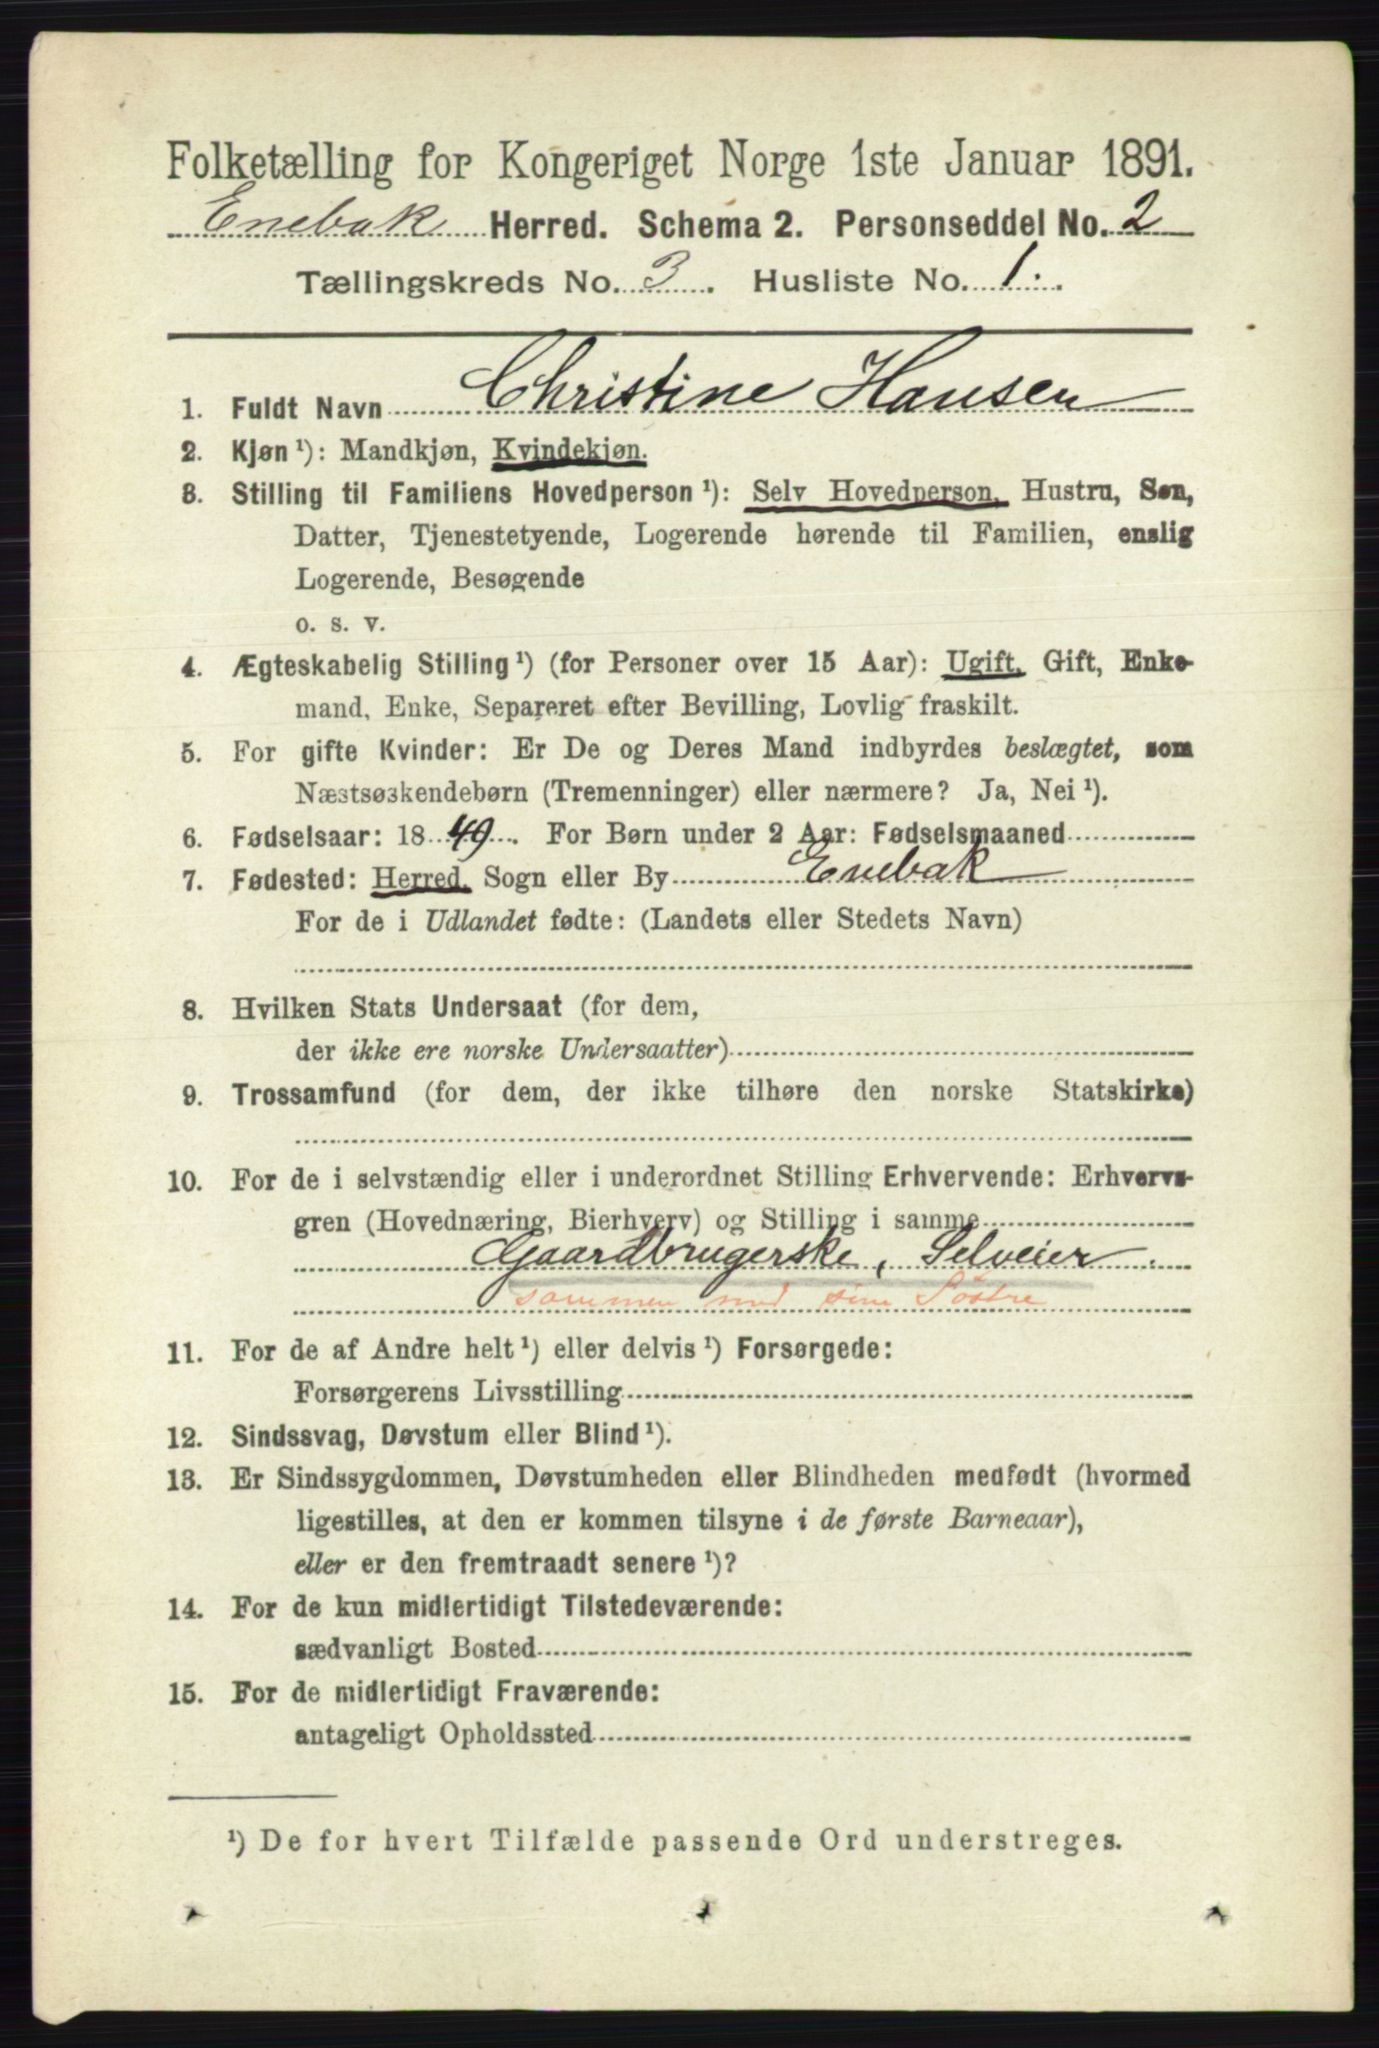 Folketælling for Kongeriget Norge 1ste Januar 1891.
Enebak Herred. Schema 2. Personseddel No. 2
Tællingskreds No. 3. Husliste No. 1.
1. Fuldt Navn Christine Hansen
2. Kjøn¹): Mandkjøn, Kvindekjøn.
3. Stilling til Familiens Hovedperson¹): Selv Hovedperson, Hustru, Søn,
Datter, Tjenestetyende, Logerende hørende til Familien, enslig
Logerende, Besøgende
o. s. v.
4. Ægteskabelig Stilling¹) (for Personer over 15 Aar): Ugift, Gift, Enke-
mand, Enke, Separeret efter Bevilling, Lovlig fraskilt.
5. For gifte Kvinder: Er De og Deres Mand indbyrdes beslægtet, som
Næstsøskendebørn (Tremenninger) eller nærmere? Ja, Nei¹).
6. Fødselsaar: 1849. For Børn under 2 Aar: Fødselsmaaned
7. Fødested: Herred, Sogn eller By Enebak
For de i Udlandet fødte: (Landets eller Stedets Navn)
8. Hvilken Stats Undersaat (for dem,
der ikke ere norske Undersaatter)
9. Trossamfund (for dem, der ikke tilhøre den norske Statskirke)
10. For de i selvstændig eller i underordnet Stilling Erhvervende: Erhvervs-
gren (Hovednæring, Bierhverv) og Stilling i samme
Gaardbrugerske, Selveier.
sammen med sine Søstre
11. For de af Andre helt¹) eller delvis¹) Forsørgede:
Forsørgerens Livsstilling
12. Sindssvag, Døvstum eller Blind¹).
13. Er Sindssygdommen, Døvstumheden eller Blindheden medfødt (hvormed
ligestilles, at den er kommen tilsyne i de første Barneaar),
eller er den fremtraadt senere¹)?
14. For de kun midlertidigt Tilstedeværende:
sædvanligt Bosted
15. For de midlertidigt Fraværende:
antageligt Opholdssted
¹) De for hvert Tilfælde passende Ord understreges.